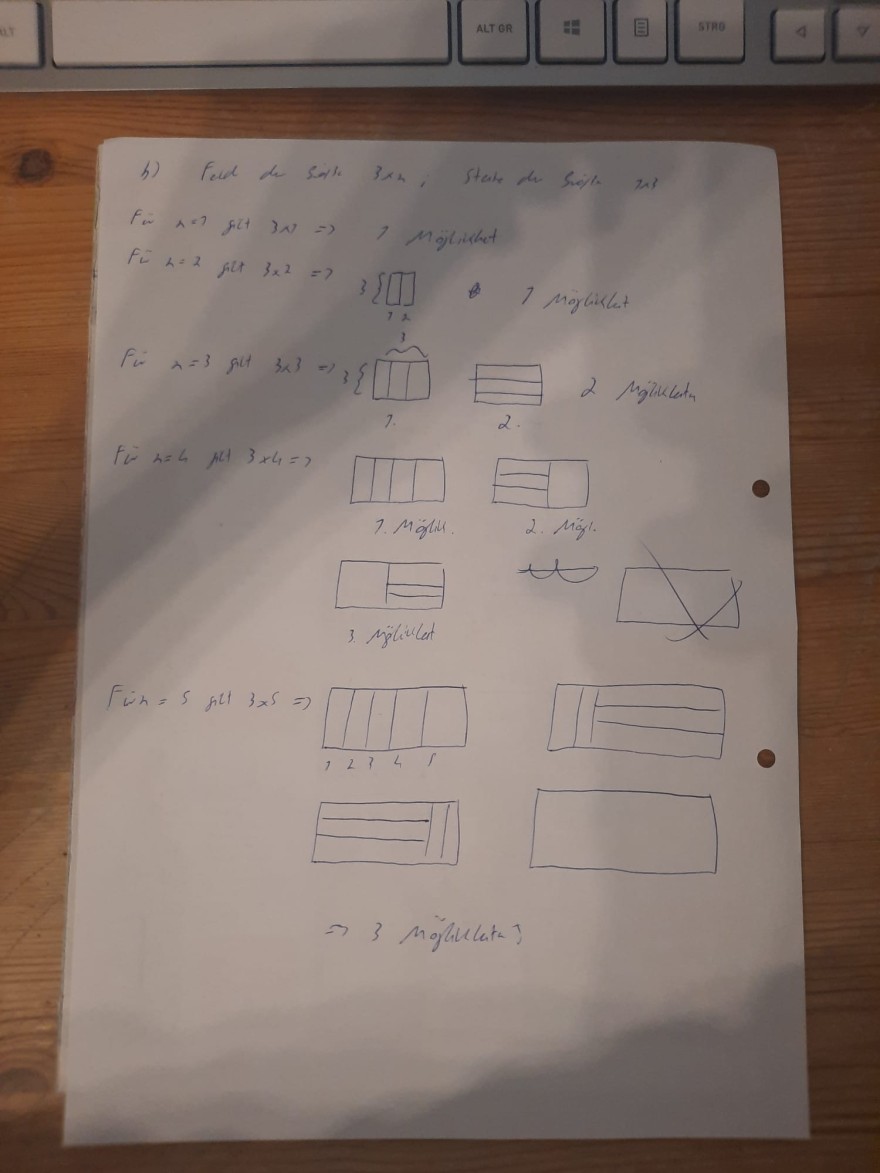 ALT GR
STRG
b) Feld der Größe 3xn, Steine der Größe 1x3
Für n=1 gilt 3x1 => 1 Möglichkeit
Für n=2 gilt 3x2 => 3 1 Möglichkeit
1 2
3
Für n=3 gilt 3x3 => 3 2 Möglichkeiten
1. 2.
Für n=4 gilt 3x4 =>
1. Möglik. 2. Mögl.
3. Möglikeit
Für n=5 gilt 3x5 =>
1 2 3 4 5
=> 3 Möglikeiten